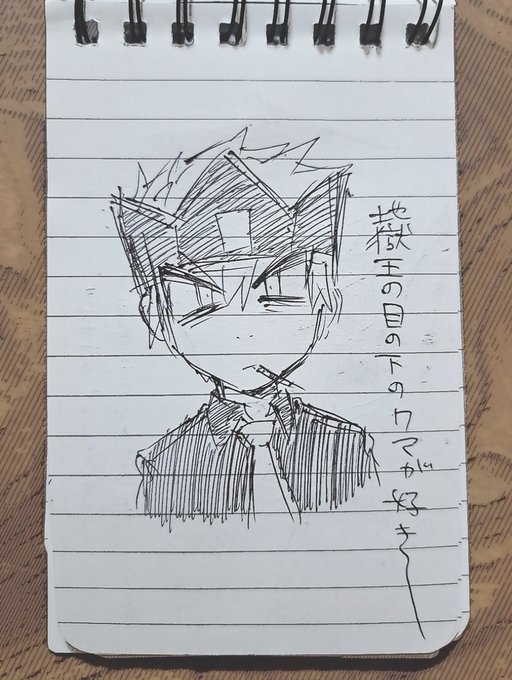 地獄王の目の下のクマが好き〜